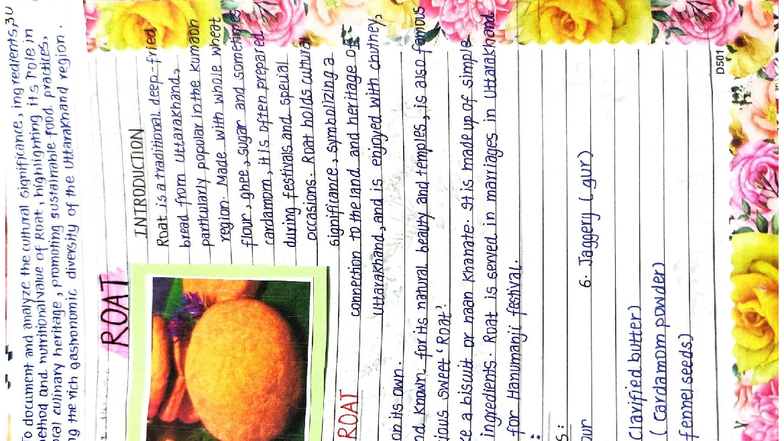 To document and analyze the cultural significance, ingredients,
ethod and nutritional value of Roat, highlighting its role in
ral culinary heritage, promoting sustainable food practices,
ng the rich gashonomic diversity of the Uttarakhand region.
ROAT
INTRODUCTION
Roat is a traditional deep-fried
bread from Uttarakhand,
particularly popular in the kumaon
region. Made with whole wheat
flour, ghee, sugar and sometimes
cardamom, it is often prepared
during festivals and special
occasions. Roat holds cultural
significance, symbolizing a
ROAT
connection to the land and heritage of
Uttarakhand, and is enjoyed with chutney,
on its own.
nd, known for its natural beauty and temples, is also famous
ious sweet 'Roat'.
e a biscuit or naan khanate. It is made up of simple
ingredients. Roat is served in marriages in Uttarakhand
for Hanumanji festival.
S:
our
6. Jaggery (gur)
Clarified butter)
(Cardamom powder)
fennel seeds)
D501